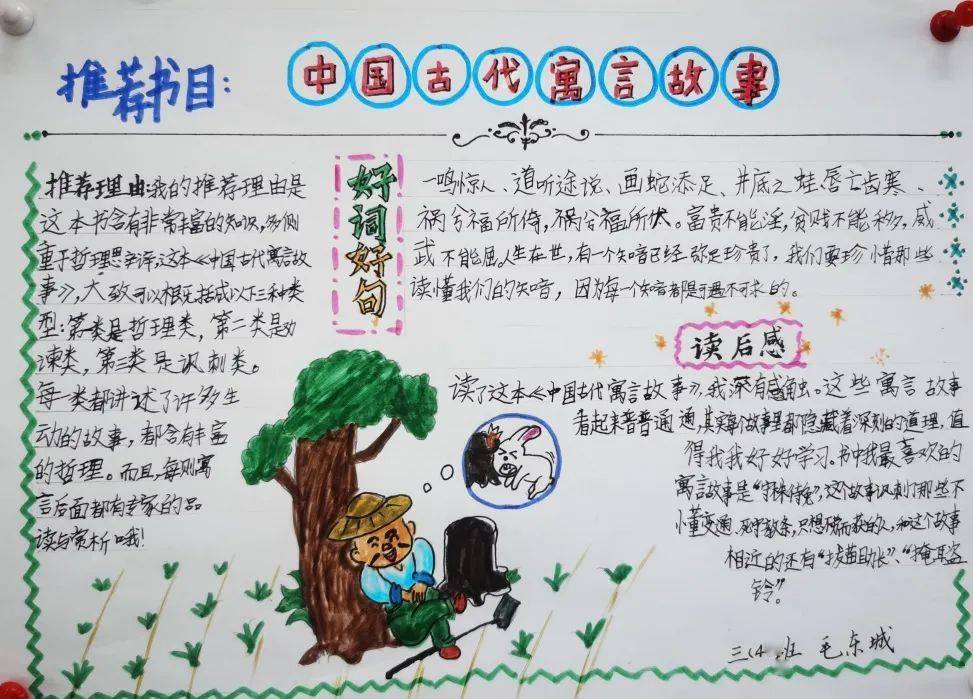 推荐书目:
中国古代寓言故事
推荐理由:我的推荐理由是
这本书含有非常丰富的知识,多侧
重于哲理思辨,这本《中国古代寓言故
事》,大致可以概括成以下三种类
型:第一类是哲理类,第二类是劝
谏类,第三类是讽刺类。
每一类都讲述了许多生
动的故事,都含有丰富
的哲理。而且,每则寓
言后面都有专家的品
读与赏析哦!
好词好句
一鸣惊人、道听途说、画蛇添足、井底之蛙、唇亡齿寒、
祸兮福所倚,祸兮福所伏。富贵不能淫,贫贱不能移,威
武不能屈。人生在世,有一个知音已经弥足珍贵了,我们要珍惜那些
读懂我们的知音,因为每一个知音都是可遇不可求的。
读后感
读了这本《中国古代寓言故事》,我深有感触。这些寓言故事
看起来普普通通,其实每个故事里都隐藏着深刻的道理,值
得我我好好学习。书中我最喜欢的
寓言故事是“守株待兔”,这个故事讽刺了那些不
懂变通、死守教条,只想不劳而获的人,和这个故事
相近的还有“拔苗助长”、“掩耳盗
铃”。
三(4)班 毛东城